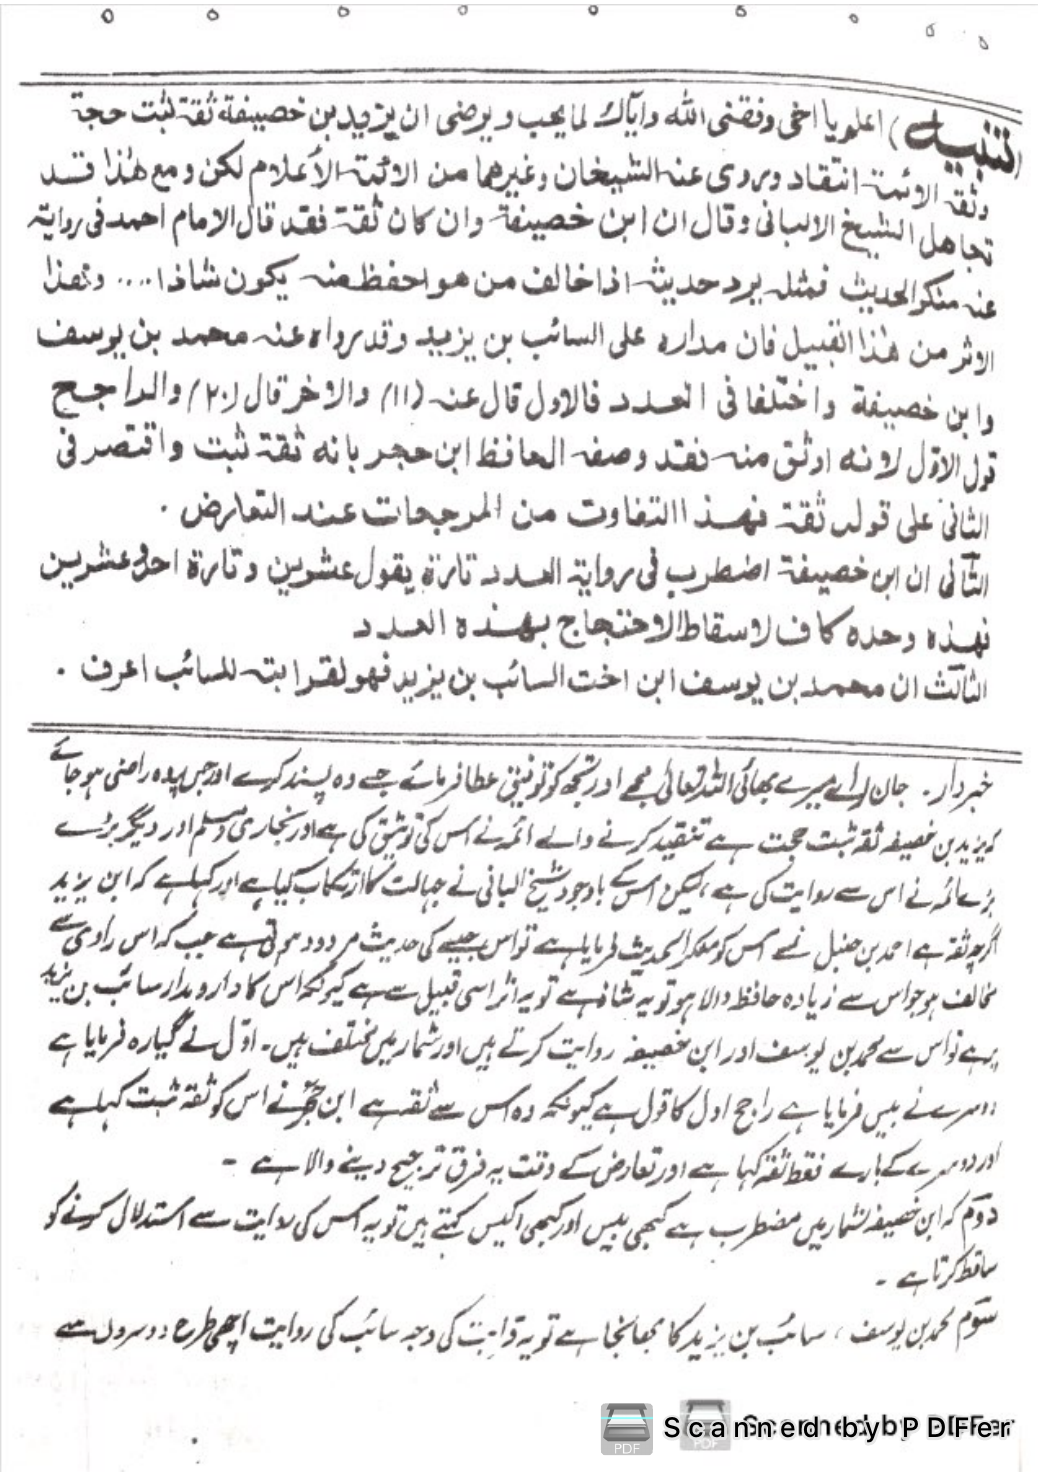 (تنبيه) اعلم يا اخي وفقني الله واياك لما يحب ويرضى ان يزيد بن خصيفة ثقة ثبت حجة
وثقه الائمة انتقاد وبروى عنه الشيخان وغيرهما من الائمة الأعلام لكن ومع هذا قد
تجاهل الشيخ الالباني وقال ان ابن خصيفة وان كان ثقة فقد قال الامام احمد في رواية
عنه منكر الحديث فمثله يرد حديثه اذا خالف من هو احفظ منه يكون شاذا .... وهذا
الاثر من هذا القبيل فان مداره على السائب بن يزيد وقد رواه عنه محمد بن يوسف
وابن خصيفة واختلفا في العدد فالاول قال عنه (١١) والاخر قال (٢٠) والراجح
قول الاوّل لانه اوثق منه فقد وصفه الحافظ ابن حجر بانه ثقة ثبت واقتصر في
الثاني على قوله ثقة فهذا التفاوت من المرجحات عند التعارض .
الثاني ان ابن خصيفة اضطرب في رواية العدد تارة يقول عشرين وتارة احد وعشرين
فهذه وحده كاف لاسقاط الاحتجاج بهذه العدد
الثالث ان محمد بن يوسف ابن اخت السائب بن يزيد فهو لقرابته للسائب اعرف .
خبردار ۔ جان لے اے میرے بھائی اللہ تعالیٰ مجھے اور تجھ کو توفیق عطا فرمائے جسے وہ پسند کرے اور جس پہ وہ راضی ہو جائے
کہ یزید بن خصیفہ ثقہ ثبت حجت ہے تنقید کرنے والے ائمہ نے اس کی توثیق کی ہے اور بخاری و مسلم اور دیگر بڑے
بڑے ائمہ نے اس سے روایت کی ہے ، لیکن اس کے باوجود شیخ البانی نے جہالت کا ارتکاب کیا ہے اور کہا ہے کہ ابن یزید
اگرچہ ثقہ ہے احمد بن حنبل نے اس کو منکر الحدیث فرمایا ہے تو اس جیسے کی حدیث مردود ہوتی ہے جب کہ اس راوی سے
مخالف ہو جو اس سے زیادہ حافظ والا ہو تو یہ شاذ ہے تو یہ اثر اسی قبیل سے ہے کیونکہ اس کا دارو مدار سائب بن یزید
پر ہے تو اس سے محمد بن یوسف اور ابن خصیفہ روایت کرتے ہیں اور شمار میں مختلف ہیں ۔ اوّل نے گیارہ فرمایا ہے
دوسرے نے بیس فرمایا ہے راجح اول کا قول ہے کیونکہ وہ اس سے ثقہ ہے ابن حجرؒ نے اس کو ثقہ ثبت کہا ہے
اور دوسرے کے بارے فقط ثقہ کہا ہے اور تعارض کے وقت یہ فرق ترجیح دینے والا ہے ۔
دوّم کہ ابن خصیفہ شمار میں مضطرب ہے کبھی بیس اور کبھی اکیس کہتے ہیں تو یہ اس کی روایت سے استدلال کرنے کو
ساقط کرتا ہے ۔
سوّم محمد بن یوسف ، سائب بن یزید کا بھانجا ہے تو یہ قرابت کی وجہ سائب کی روایت اچھی طرح دوسروں سے
Scanned by PDFer
Scanned by PDFer